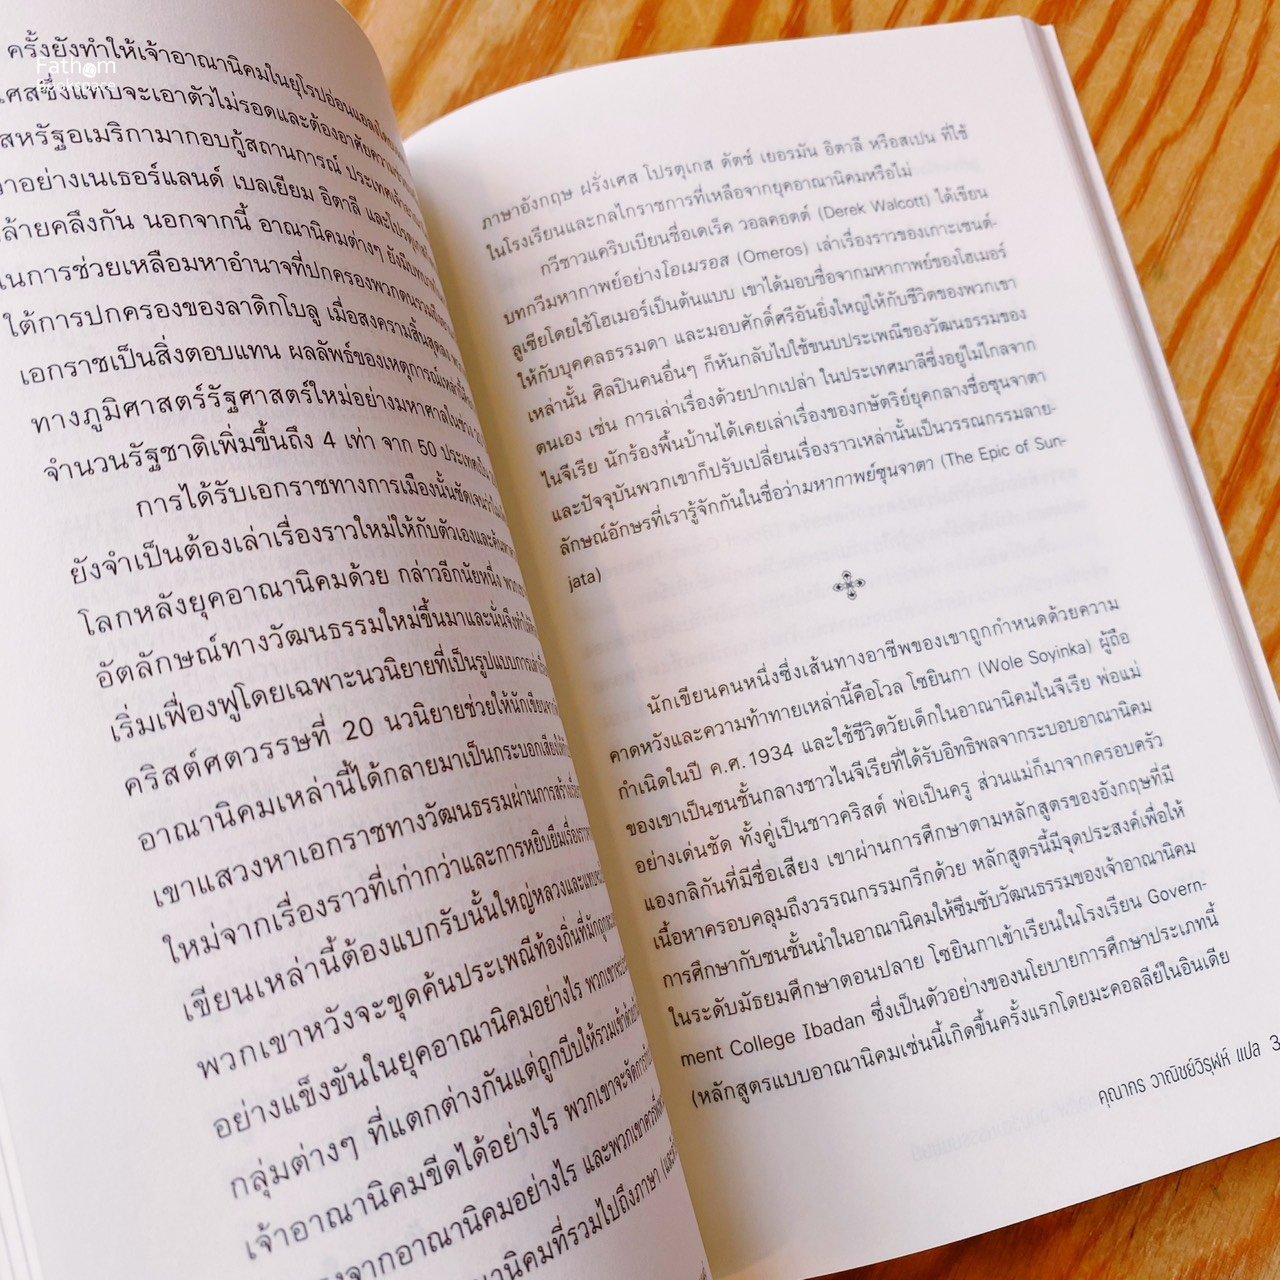 Fathom
Bookspace
ครั้งยังทำให้เจ้าอาณานิคมในยุโรปอ่อนแอลง
เศสซึ่งแทบจะเอาตัวไม่รอดและต้องอาศัยความ
สหรัฐอเมริกามากอบกู้สถานการณ์ ประเทศเจ้า
าอย่างเนเธอร์แลนด์ เบลเยียม อิตาลี และโปรตุเกส
ล้ายคลึงกัน นอกจากนี้ อาณานิคมต่างๆ ยังมีบทบาท
นการช่วยเหลือมหาอำนาจที่ปกครองพวกตน
ใต้การปกครองของลาดิกโบลู เมื่อสงครามสิ้นสุดลง
เอกราชเป็นสิ่งตอบแทน ผลลัพธ์ของเหตุการณ์เหล่านี้
ทางภูมิศาสตร์รัฐศาสตร์ใหม่อย่างมหาศาลในช่วง
จำนวนรัฐชาติเพิ่มขึ้นถึง 4 เท่า จาก 50 ประเทศเป็น
การได้รับเอกราชทางการเมืองนั้นชัดเจน
ยังจำเป็นต้องเล่าเรื่องราวใหม่ให้กับตัวเองและค้นหา
โลกหลังยุคอาณานิคมด้วย กล่าวอีกนัยหนึ่ง
อัตลักษณ์ทางวัฒนธรรมใหม่ขึ้นมาและนั่นจึงทำให้
เริ่มเฟื่องฟูโดยเฉพาะนวนิยายที่เป็นรูปแบบการเล่า
คริสต์ศตวรรษที่ 20 นวนิยายช่วยให้นักเขียน
อาณานิคมเหล่านี้ได้กลายมาเป็นกระบอกเสียง
เขาแสวงหาเอกราชทางวัฒนธรรมผ่านการสร้าง
ใหม่จากเรื่องราวที่เก่ากว่าและการหยิบยืมเรื่อง
เขียนเหล่านี้ต้องแบกรับนั้นใหญ่หลวงและ
พวกเขาหวังจะขุดค้นประเพณีท้องถิ่นที่มักถูก
อย่างแข็งขันในยุคอาณานิคมอย่างไร พวกเขา
กลุ่มต่างๆ ที่แตกต่างกันแต่ถูกบีบให้รวมเข้าด้วย
เจ้าอาณานิคมขีดได้อย่างไร พวกเขาจะจัดการ
จากอาณานิคมอย่างไร และพวกเขาควร
ณานิคมที่รวมไปถึงภาษา
ภาษาอังกฤษ ฝรั่งเศส โปรตุเกส ดัตช์ เยอรมัน อิตาลี หรือสเปน ที่ใช้
ในโรงเรียนและกลไกราชการที่เหลือจากยุคอาณานิคมหรือไม่
กวีชาวแคริบเบียนชื่อเดเร็ค วอลคอตต์ (Derek Walcott) ได้เขียน
บทกวีมหากาพย์อย่างโอเมรอส (Omeros) เล่าเรื่องราวของเกาะเซนต์-
ลูเซียโดยใช้โฮเมอร์เป็นต้นแบบ เขาได้มอบชื่อจากมหากาพย์ของโฮเมอร์
ให้กับบุคคลธรรมดา และมอบศักดิ์ศรีอันยิ่งใหญ่ให้กับชีวิตของพวกเขา
เหล่านั้น ศิลปินคนอื่นๆ ก็หันกลับไปใช้ขนบประเพณีของวัฒนธรรมของ
ตนเอง เช่น การเล่าเรื่องด้วยปากเปล่า ในประเทศมาลีซึ่งอยู่ไม่ไกลจาก
ไนจีเรีย นักร้องพื้นบ้านได้เคยเล่าเรื่องของกษัตริย์ยุคกลางชื่อซุนจาตา
และปัจจุบันพวกเขาก็ปรับเปลี่ยนเรื่องราวเหล่านั้นเป็นวรรณกรรมลาย-
ลักษณ์อักษรที่เรารู้จักกันในชื่อว่ามหากาพย์ซุนจาตา (The Epic of Sun-
jata)
นักเขียนคนหนึ่งซึ่งเส้นทางอาชีพของเขาถูกกำหนดด้วยความ
คาดหวังและความท้าทายเหล่านี้คือโวล โซยินกา (Wole Soyinka) ผู้ถือ
กำเนิดในปี ค.ศ.1934 และใช้ชีวิตวัยเด็กในอาณานิคมไนจีเรีย พ่อแม่
ของเขาเป็นชนชั้นกลางชาวไนจีเรียที่ได้รับอิทธิพลจากระบอบอาณานิคม
อย่างเด่นชัด ทั้งคู่เป็นชาวคริสต์ พ่อเป็นครู ส่วนแม่ก็มาจากครอบครัว
แองกลิกันที่มีชื่อเสียง เขาผ่านการศึกษาตามหลักสูตรของอังกฤษที่มี
เนื้อหาครอบคลุมถึงวรรณกรรมกรีกด้วย หลักสูตรนี้มีจุดประสงค์เพื่อให้
การศึกษากับชนชั้นนำในอาณานิคมให้ซึมซับวัฒนธรรมของเจ้าอาณานิคม
ในระดับมัธยมศึกษาตอนปลาย โซยินกาเข้าเรียนในโรงเรียน Govern-
ment College Ibadan ซึ่งเป็นตัวอย่างของนโยบายการศึกษาประเภทนี้
(หลักสูตรแบบอาณานิคมเช่นนี้เกิดขึ้นครั้งแรกโดยมะคอลลีย์ในอินเดีย
คุณากร วาณิชย์วิรุฬห์ แปล 3